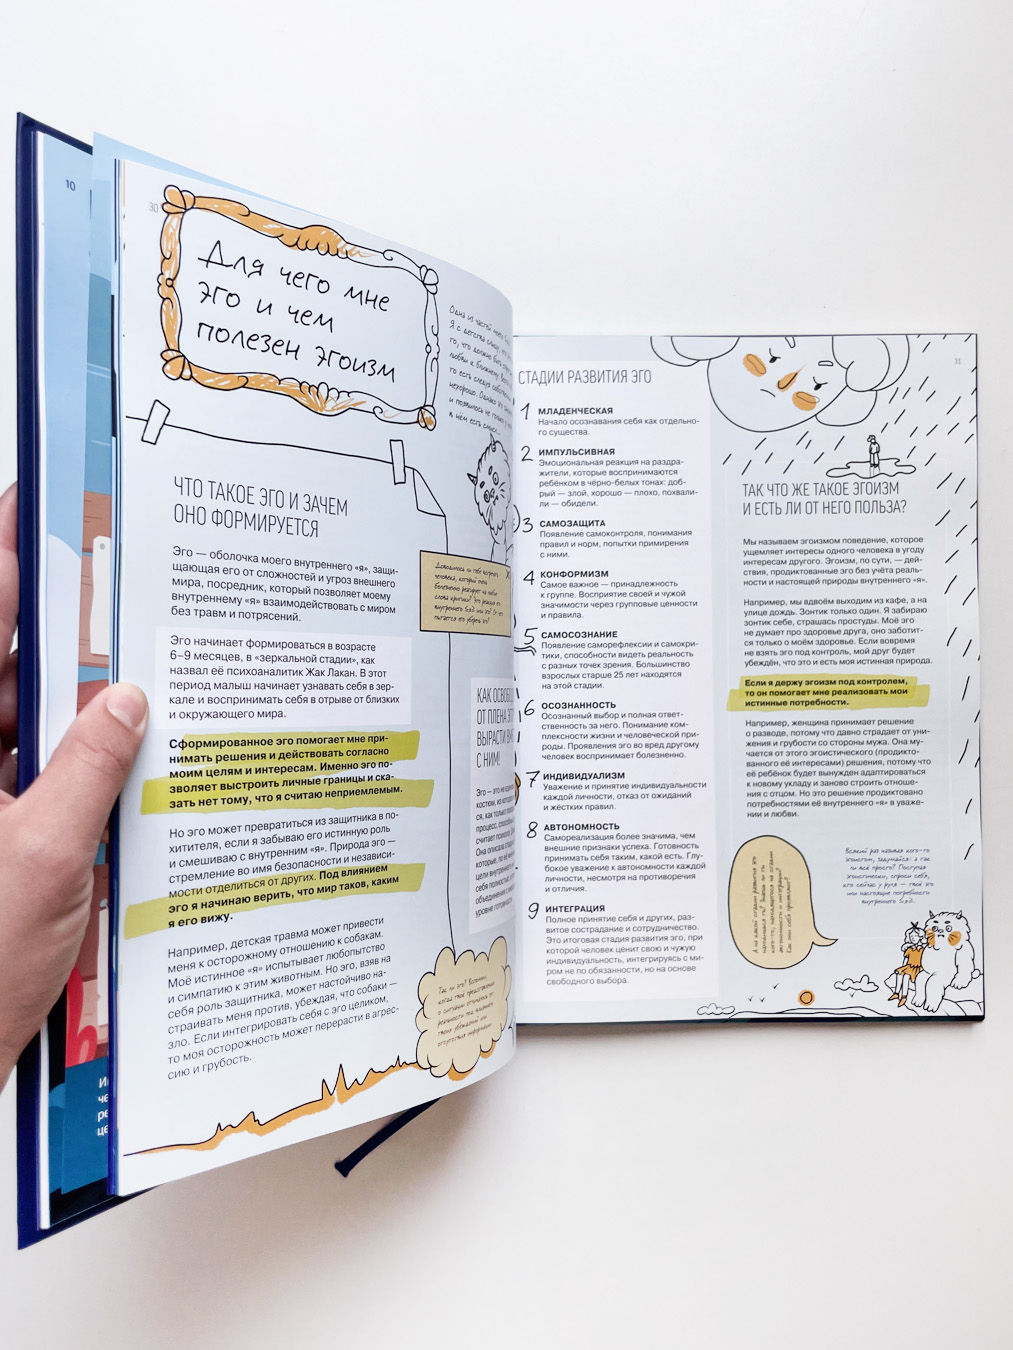 10
30
Для чего мне
эго и чем
полезен эгоизм
Одна из частей моего
Я с детства слышу, что
то, что должно быть
любви к ближнему.
то есть следуя собственным
нехорошо. Однако эго
и появилось не только у
в нём есть смысл...
ЧТО ТАКОЕ ЭГО И ЗАЧЕМ
ОНО ФОРМИРУЕТСЯ
Эго — оболочка моего внутреннего «я», защи-
щающая его от сложностей и угроз внешнего
мира, посредник, который позволяет моему
внутреннему «я» взаимодействовать с миром
без травм и потрясений.
Эго начинает формироваться в возрасте
6–9 месяцев, в «зеркальной стадии», как
назвал её психоаналитик Жак Лакан. В этот
период малыш начинает узнавать себя в зер-
кале и воспринимать себя в отрыве от близких
и окружающего мира.
Сформированное эго помогает мне при-
нимать решения и действовать согласно
моим целям и интересам. Именно эго по-
зволяет выстроить личные границы и ска-
зать нет тому, что я считаю неприемлемым.
Но эго может превратиться из защитника в по-
хитителя, если я забываю его истинную роль
и смешиваю с внутренним «я». Природа эго —
стремление во имя безопасности и независи-
мости отделиться от других. Под влиянием
эго я начинаю верить, что мир таков, каким
я его вижу.
Например, детская травма может привести
меня к осторожному отношению к собакам.
Моё истинное «я» испытывает любопытство
и симпатию к этим животным. Но эго, взяв на
себя роль защитника, может настойчиво на-
страивать меня против, убеждая, что собаки —
зло. Если интегрировать себя с эго целиком,
то моя осторожность может перерасти в агрес-
сию и грубость.
Доводилось ли тебе встречать
человека, который очень
болезненно реагирует на любые
слова критики? Это реакция его
внутреннего
пытается его уберечь эго?
КАК ОСВОБО
ОТ ПЛЕНА ЭГО
ВЫРАСТИ ВМЕ
С НИМ!
Эго — это не един
костюм, из которо
ся, как только
процесс, способн
считает психол
Она описала стади
которые, по её
цели внутреннего
себя полностью,
объединиться с ми
уровне готовности
Так ли это? Вспомни,
когда твоё представление
о ситуации отличалось от
реальности под влиянием
твоих убеждений или
отсутствия информации.
31
СТАДИИ РАЗВИТИЯ ЭГО
1 МЛАДЕНЧЕСКАЯ
Начало осознавания себя как отдельно-
го существа.
2 ИМПУЛЬСИВНАЯ
Эмоциональная реакция на раздра-
жители, которые воспринимаются
ребёнком в чёрно-белых тонах: доб-
рый — злой, хорошо — плохо, похвали-
ли — обидели.
3 САМОЗАЩИТА
Появление самоконтроля, понимания
правил и норм, попытки примирения
с ними.
4 КОНФОРМИЗМ
Самое важное — принадлежность
к группе. Восприятие своей и чужой
значимости через групповые ценности
и правила.
5 САМОСОЗНАНИЕ
Появление саморефлексии и самокри-
тики, способности видеть реальность
с разных точек зрения. Большинство
взрослых старше 25 лет находятся
на этой стадии.
6 ОСОЗНАННОСТЬ
Осознанный выбор и полная ответ-
ственность за него. Понимание ком-
плексности жизни и человеческой при-
роды. Проявления эго во вред другому
человек воспринимает болезненно.
7 ИНДИВИДУАЛИЗМ
Уважение и принятие индивидуальности
каждой личности, отказ от ожиданий
и жёстких правил.
8 АВТОНОМНОСТЬ
Самореализация более значима, чем
внешние признаки успеха. Готовность
принимать себя таким, какой есть. Глу-
бокое уважение к автономности каждой
личности, несмотря на противоречия
и отличия.
9 ИНТЕГРАЦИЯ
Полное принятие себя и других, раз-
витое сострадание и сотрудничество.
Это итоговая стадия развития эго, при
которой человек ценит свою и чужую
индивидуальность, интегрируясь с ми-
ром не по обязанности, но на основе
свободного выбора.
ТАК ЧТО ЖЕ ТАКОЕ ЭГОИЗМ
И ЕСТЬ ЛИ ОТ НЕГО ПОЛЬЗА?
Мы называем эгоизмом поведение, которое
ущемляет интересы одного человека в угоду
интересам другого. Эгоизм, по сути, — дей-
ствия, продиктованные эго без учёта реаль-
ности и настоящей природы внутреннего «я».
Например, мы вдвоём выходим из кафе, а на
улице дождь. Зонтик только один. Я забираю
зонтик себе, страшась простуды. Моё эго
не думает про здоровье друга, оно заботит-
ся только о моём здоровье. Если вовремя
не взять эго под контроль, мой друг будет
убеждён, что это и есть моя истинная природа.
Если я держу эгоизм под контролем,
то он помогает мне реализовать мои
истинные потребности.
Например, женщина принимает решение
о разводе, потому что давно страдает от уни-
жения и грубости со стороны мужа. Она му-
чается от этого эгоистического (продикто-
ванного её интересами) решения, потому что
её ребёнок будет вынужден адаптироваться
к новому укладу и заново строить отноше-
ния с отцом. Но это решение продиктовано
потребностями её внутреннего «я» в уваже-
нии и любви.
А на какой стадии развития эго
находишься ты? Знаешь ли ты
кого-то, находящегося на стадии
автономности и интеграции?
Как они себя проявляют?
Всякий раз называя кого-то
эгоистом, задумайся: а так
ли всё просто? Поступая
эгоистически, спроси себя,
кто сейчас у руля — твоё эго
или настоящие потребности
внутреннего